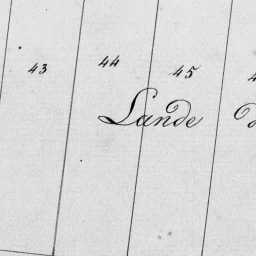 43 44 45
Lande